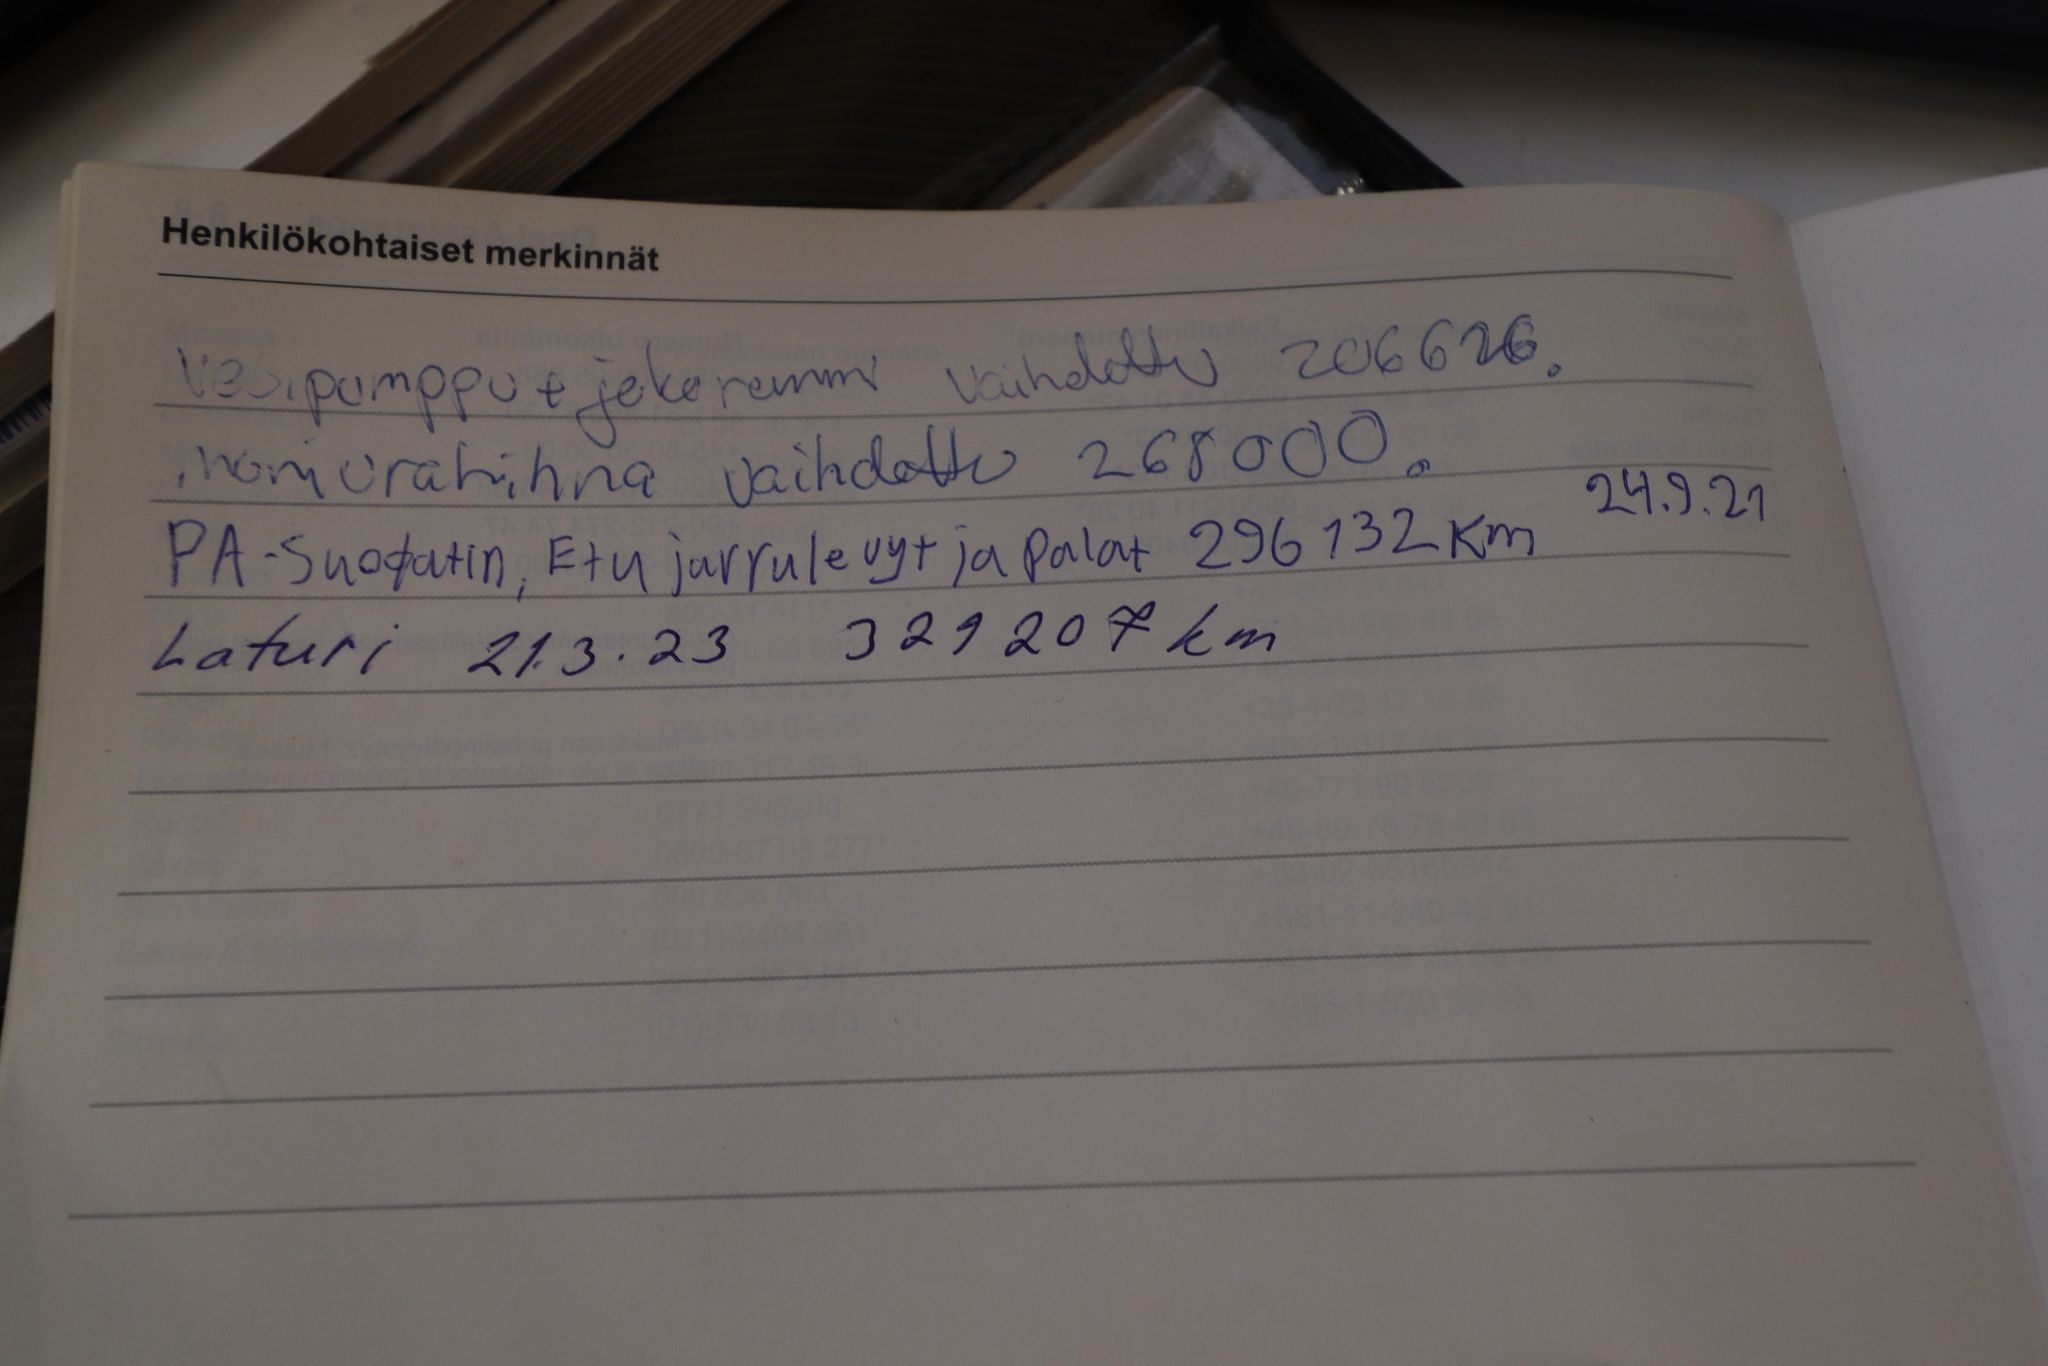 Henkilökohtaiset merkinnät
Vesipumppu + jakoremmi vaihdettu 206626.
moniurahihna vaihdettu 268000.
24.9.21
PA-Suodatin, Etu jarrulevyt ja Palat 296 132 Km
Laturi 21.3.23 329 207 km